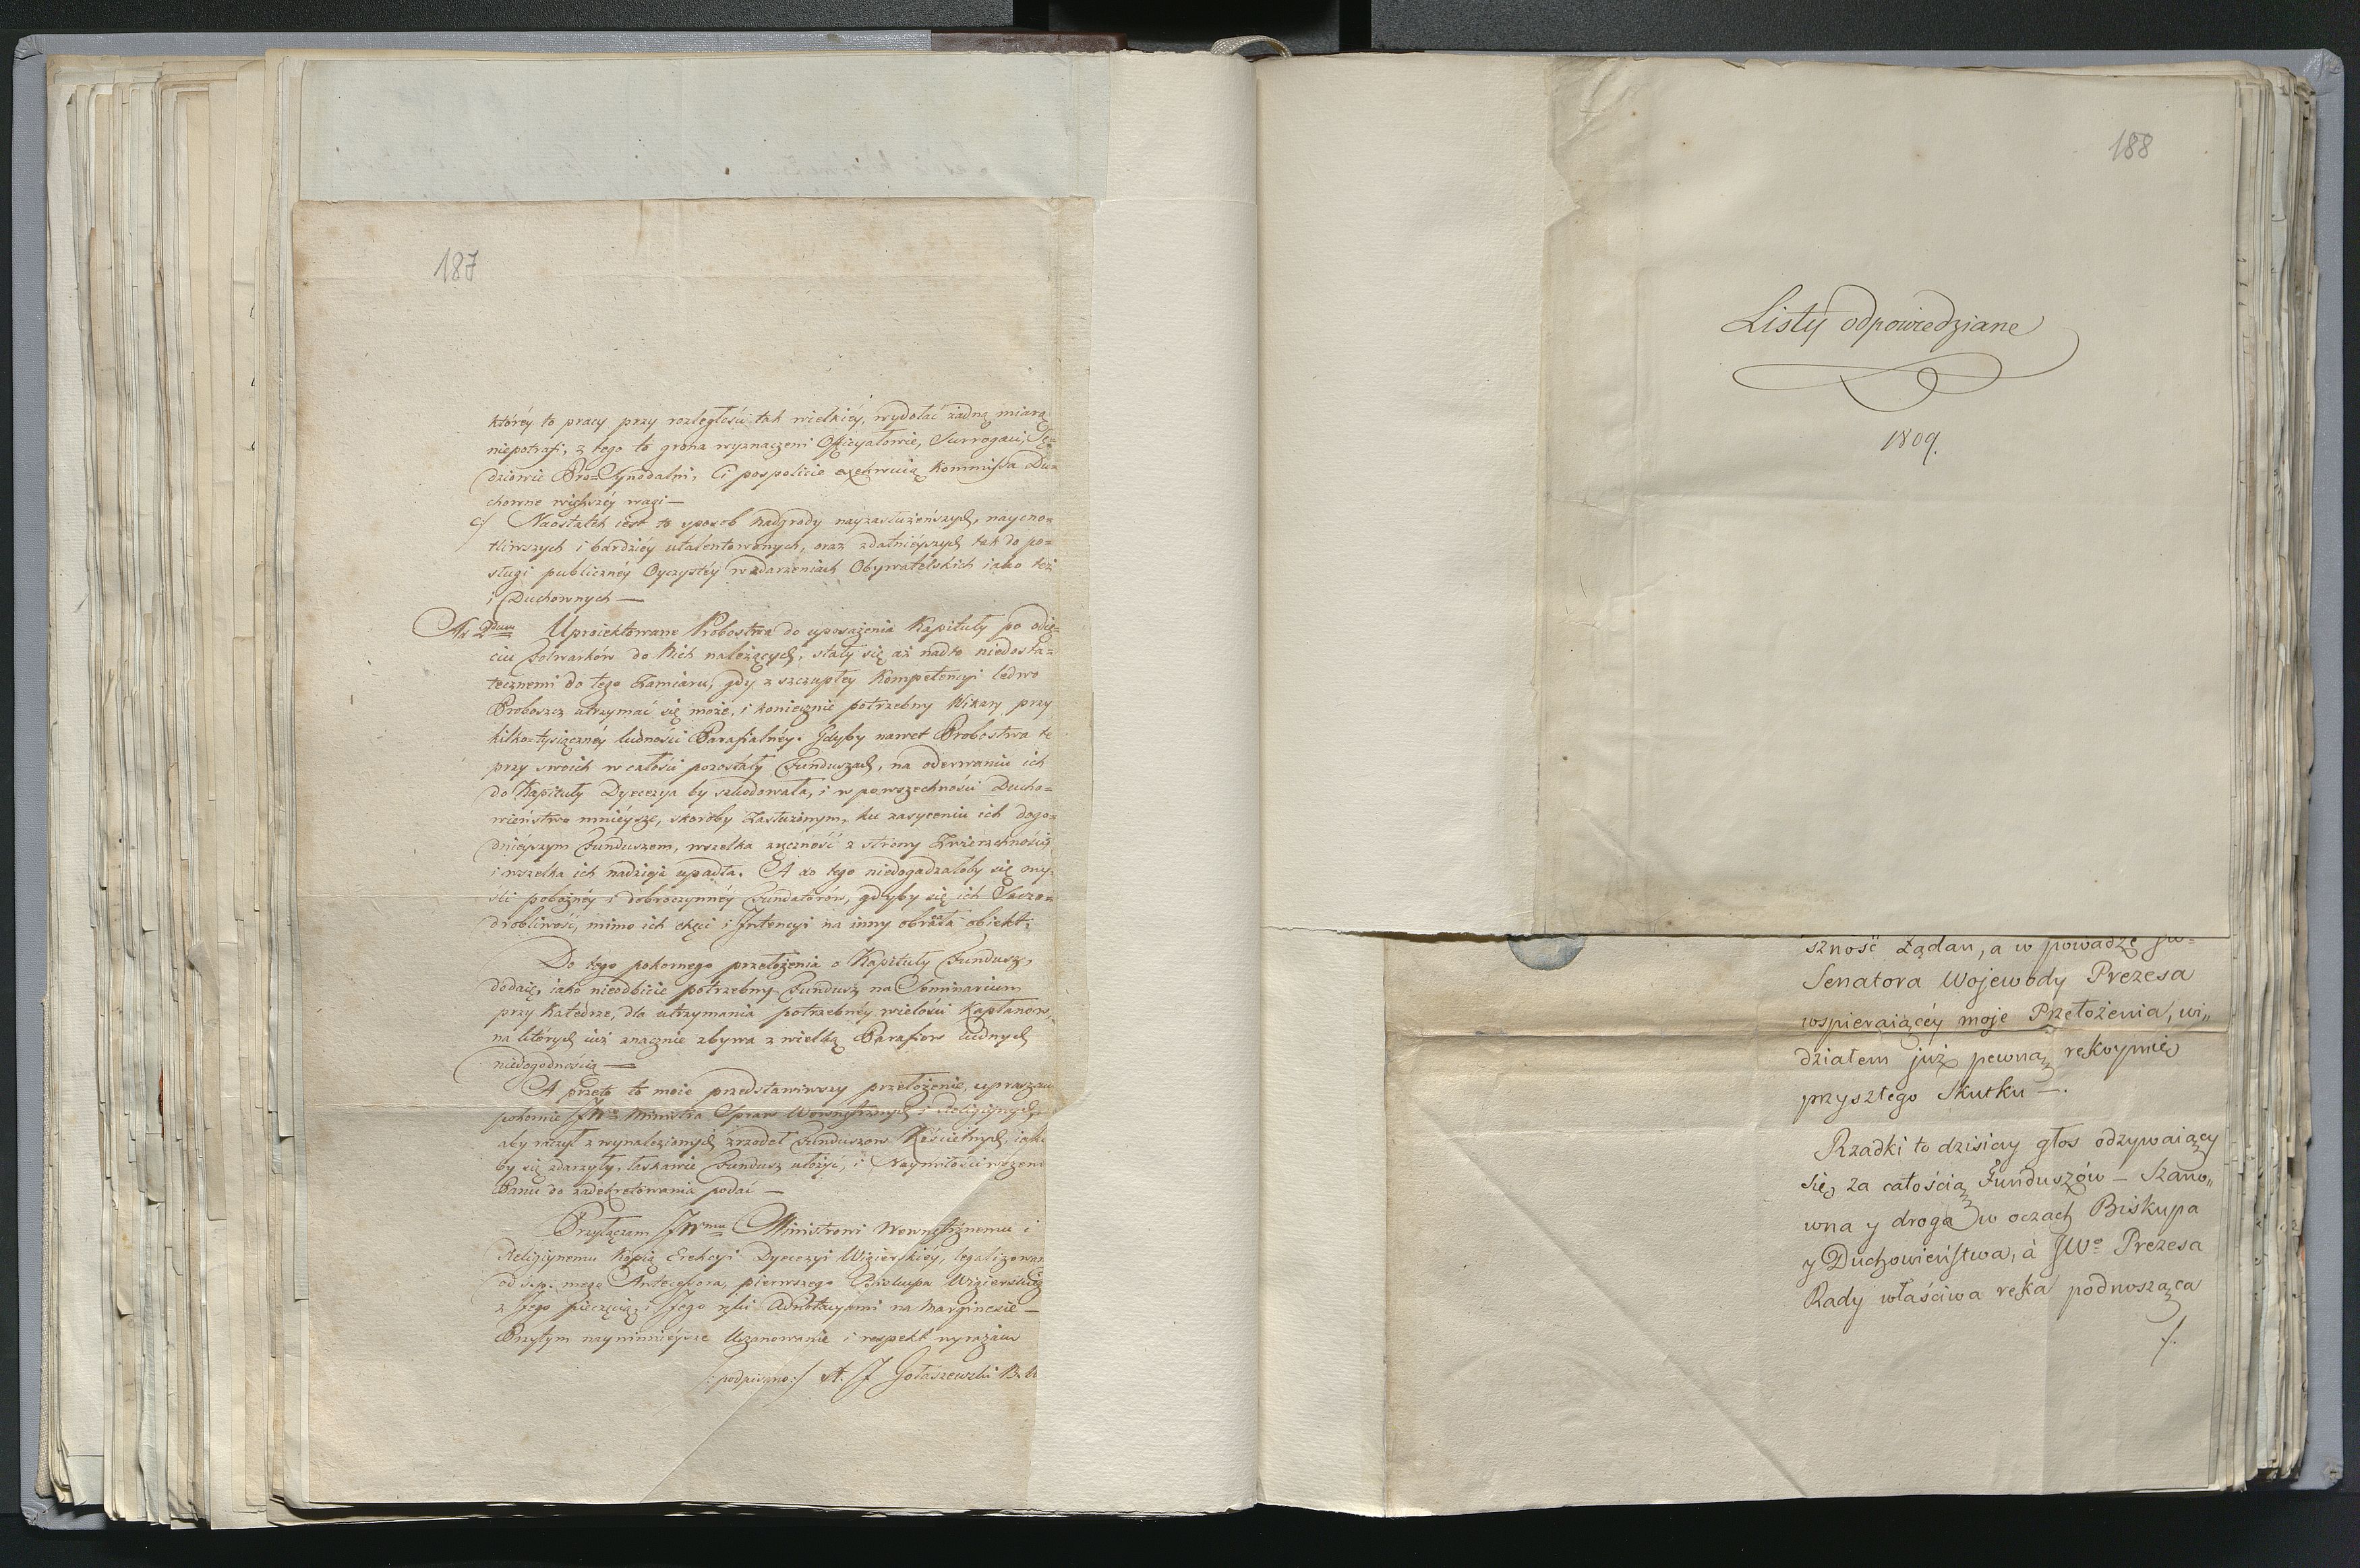 187
któréy to pracy przy rozległości tak wielkiéy, wydołać żadną miarą
niepotrafi, z tego to grona wyznaczeni Officyałowie, Surrogaci, Sę=
dziowie Pro=Synodalni, Ci pospolicie exekwuią Kommissa Du=
chowne większéy wagi —
c/ Naostatek iest to sposob Nadgrody nayzasłużeńszych, naycno=
tliwszych i bardziéy utalentowanych, oraz zdatnieyszych tak do po=
sługi publicznéy Oyczystéy w zdarzeniach Obywatelskich iako też
i Duchownych —
Ad 2dum Uproiektowane Probostwa do uposażenia Kapituły po odię=
ciu Folwarków do Nich należących, stały się aż nadto niedosta=
tecznemi do tego Zamiaru, gdy z szczupłey Kompetencyi ledwo
Proboszcz utrzymać się może, i koniecznie potrzebny Wikary przy
kilko=tysiącznéy ludności Parafialnéy. Gdyby nawet Probostwa te
przy swoich w całości pozostały Funduszach, na oderwaniu ich
do Kapituły Dyecezya by szkodowała, i w powszechności Ducho=
wieństwo mnieysze, skoroby Zasłużonym, ku zasyceniu ich dogo=
dnieyszym Funduszem, wszelka zyczność z strony Zwierzchności,
i wszelka ich nadzieja upadła. A do tego niedogadzałoby się my=
śli pobożnéy i dobroczynnéy Fundatorów, gdyby się ich Szczo=
drobliwość, mimo ich chęci i Intencyi na inny obráła obiekt.
Do tego pokornego przełożenia o Kapituły Fundusz,
dodaię, iako nieodbicie potrzebny Fundusz na Seminarium
przy Katedrze, dla utrzymania potrzebnéy wielości Kapłanów,
na których iuż znacznie zbywa z wielką Parafiow ludnych
niedogodnością —
A przeto to moie przedstawiwszy przełożenie, upraszam
pokornie JWo Ministra Spraw Wewnętrznych i Religijnych,
aby raczył z wynalezionych zrzodeł Funduszow Kościelnych, iakie
by się zdarzyły, łaskawie Fundusz ułożyć, i Naymiłościwszemu
Panu do zadekretowania podać —
Przyłączam JWmu Ministrowi Wewnętrznemu i
Religiynemu Kopią Erekcyi Dyecezyi Wigierskiéy, legalizowaną
od ś.p. mego Antecessora, pierwszego Biskupa Wigierskiego
z Jego pieczęcią, i Jego ręki Adnotacyami na Marginesie —
Przytym nayminieysze Uszanowanie i respekt wyrażam
/:podpisano:/ A. J Gołaszewski B. W
188
Listy odpowiedziane
1809.
szność Żądań, a w powadze JW=
Senatora Wojewody Prezesa
wspieraiącéy moje Przełożenia, wi„
działem już pewną rękoymię
przyszłego Skutku —.
Rzadki to dzisiay głos odzywaiący
się za całością Funduszów — Szano„
wna y droga w oczach Biskupa
y Duchowieństwa, à JWo Prezesa
Rady właściwa ręka podnosząca
/.